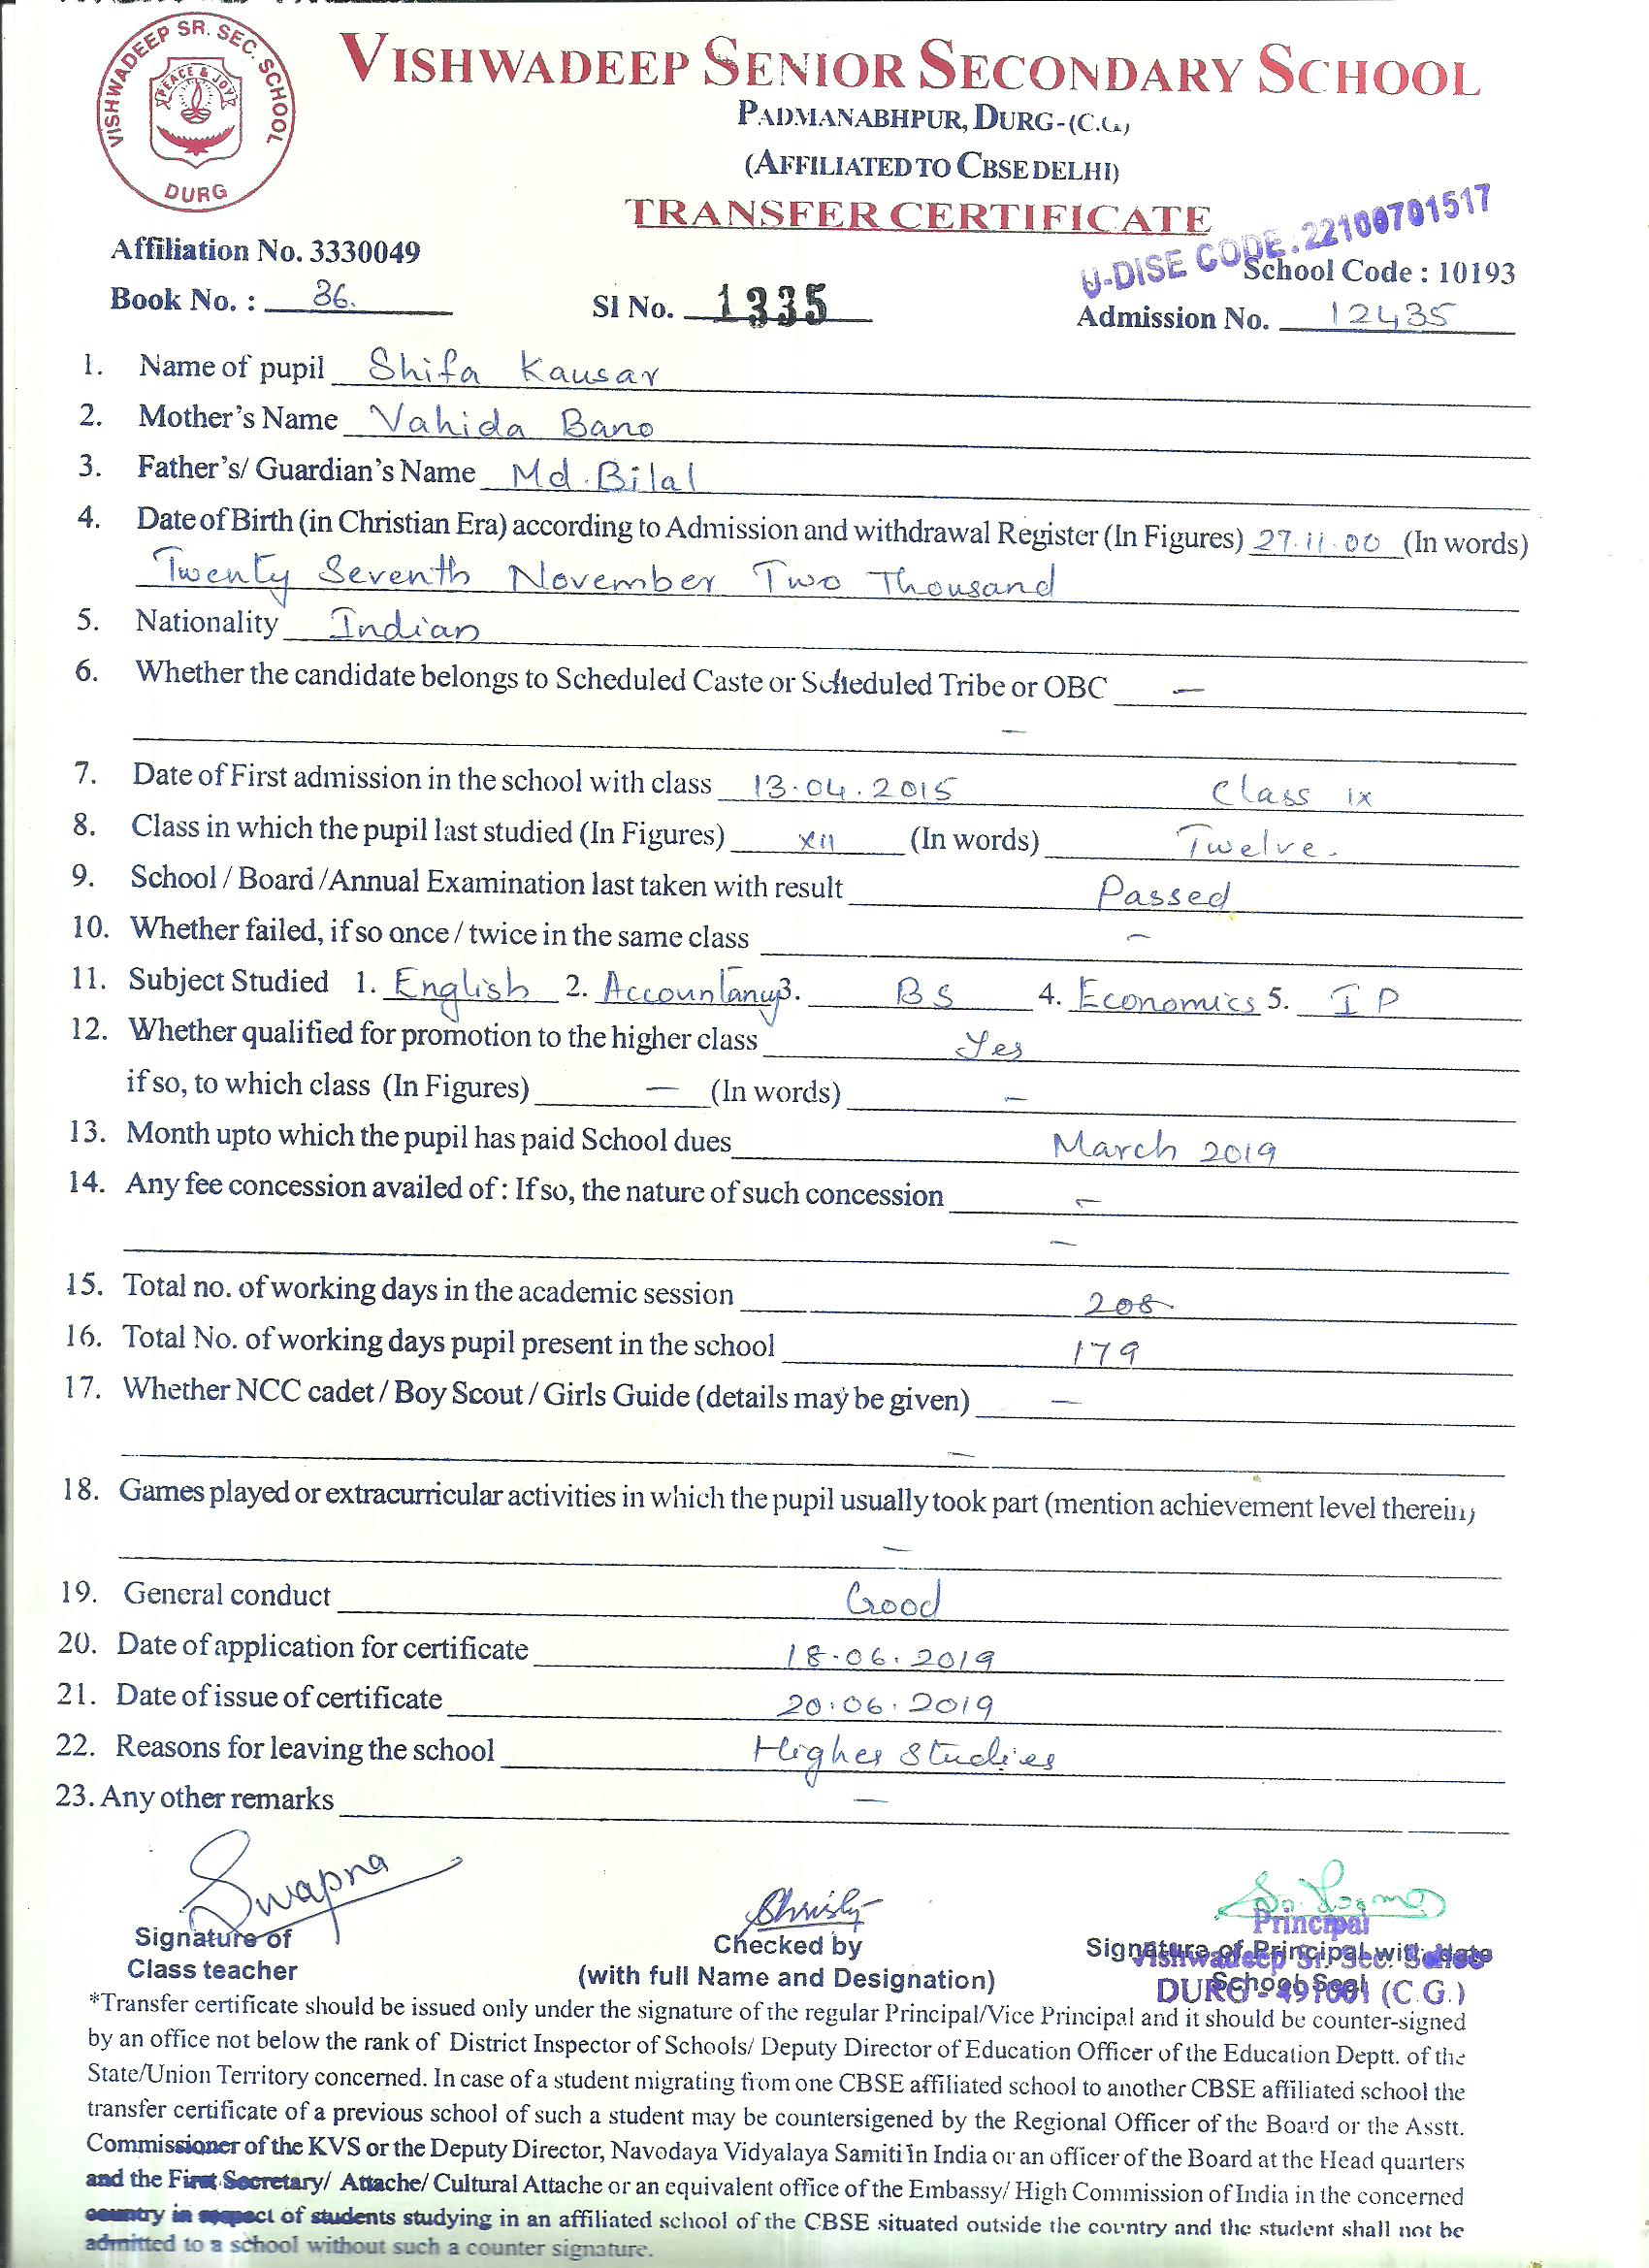 VISHWADEEP SR. SEC. SCHOOL
PEACE & JOY
DURG
VISHWADEEP SENIOR SECONDARY SCHOOL
PADMANABHPUR, DURG-(C.G)
(AFFILIATED TO CBSE DELHI)
TRANSFER CERTIFICATE
U-DISE CODE.22100701517
Affiliation No. 3330049
School Code : 10193
Book No. : 36.
Sl No. 1335
Admission No. 12435
1. Name of pupil Shifa Kausar
2. Mother's Name Vahida Bano
3. Father's/ Guardian's Name Md. Bilal
4. Date of Birth (in Christian Era) according to Admission and withdrawal Register (In Figures) 27.11.00 (In words)
Twenty Seventh November Two Thousand
5. Nationality Indian
6. Whether the candidate belongs to Scheduled Caste or Scheduled Tribe or OBC —
—
7. Date of First admission in the school with class 13.04.2015 Class IX
8. Class in which the pupil last studied (In Figures) XII (In words) Twelve.
9. School / Board /Annual Examination last taken with result Passed
10. Whether failed, if so once / twice in the same class —
11. Subject Studied 1. English 2. Accountancy 3. BS 4. Economics 5. IP
12. Whether qualified for promotion to the higher class Yes
if so, to which class (In Figures) — (In words) —
13. Month upto which the pupil has paid School dues March 2019
14. Any fee concession availed of : If so, the nature of such concession —
—
15. Total no. of working days in the academic session 208
16. Total No. of working days pupil present in the school 179
17. Whether NCC cadet / Boy Scout / Girls Guide (details may be given) —
—
18. Games played or extracurricular activities in which the pupil usually took part (mention achievement level therein)
—
19. General conduct Good
20. Date of application for certificate 18.06.2019
21. Date of issue of certificate 20.06.2019
22. Reasons for leaving the school Higher Studies
23. Any other remarks —
Swapna
Signature of
Class teacher
Christy
Checked by
(with full Name and Designation)
Principal
Signature of Principal with date
Vishwadeep Sr. Sec. School
School Seal
DURG - 491001 (C.G.)
*Transfer certificate should be issued only under the signature of the regular Principal/Vice Principal and it should be counter-signed
by an office not below the rank of District Inspector of Schools/ Deputy Director of Education Officer of the Education Deptt. of the
State/Union Territory concerned. In case of a student migrating from one CBSE affiliated school to another CBSE affiliated school the
transfer certificate of a previous school of such a student may be countersigened by the Regional Officer of the Board or the Asstt.
Commissioner of the KVS or the Deputy Director, Navodaya Vidyalaya Samiti in India or an officer of the Board at the Head quarters
and the First Secretary/ Attache/ Cultural Attache or an equivalent office of the Embassy/ High Commission of India in the concerned
country in respect of students studying in an affiliated school of the CBSE situated outside the country and the student shall not be
admitted to a school without such a counter signature.